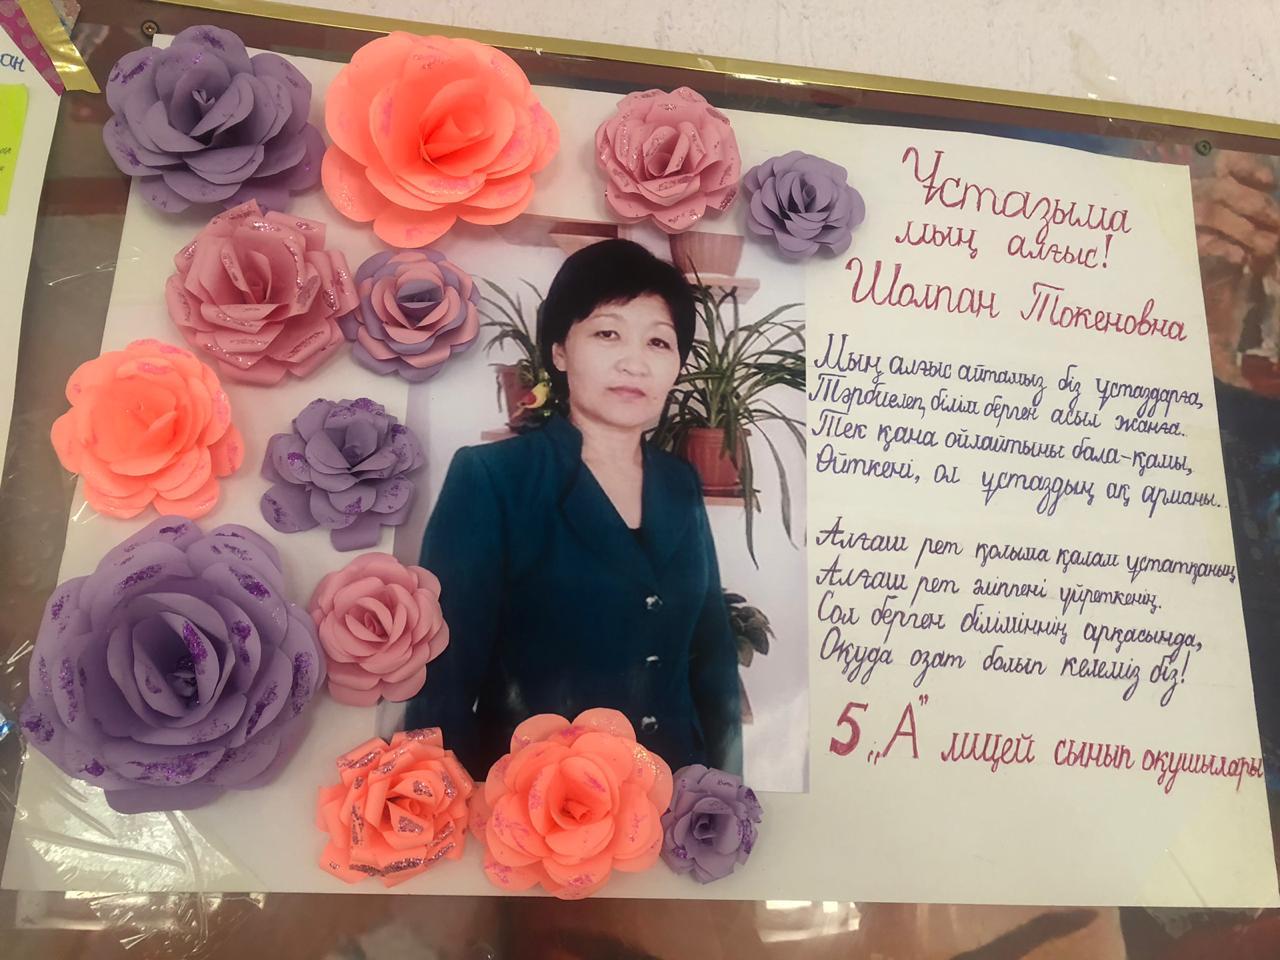 Ұстазыма
мың алғыс!
Шолпан Токеновна
Мың алғыс айтамыз біз ұстаздарға,
Тәрбиелеп, білім берген асыл жанға..
Тек қана ойлайтыны бала-қамы,
Өйткені, ол ұстаздың ақ арманы..
Алғаш рет қолыма қалам ұстатқаның
Алғаш рет әліппені үйреткенің.
Сол берген біліміннің арқасында,
Оқуда озат болып келеміз біз!
5 „А" лицей сынып оқушылары